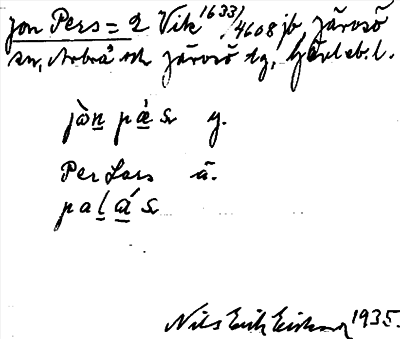 Jon Pers = 2 Vik 1633/4608 jb, Järvsö
sn, Arbrå och Järvsö tg, Gävleb. l.
jòn pá̱s y.
Per Lars ä.
paḻá̱s
Nils Erik Eriksson 1935.